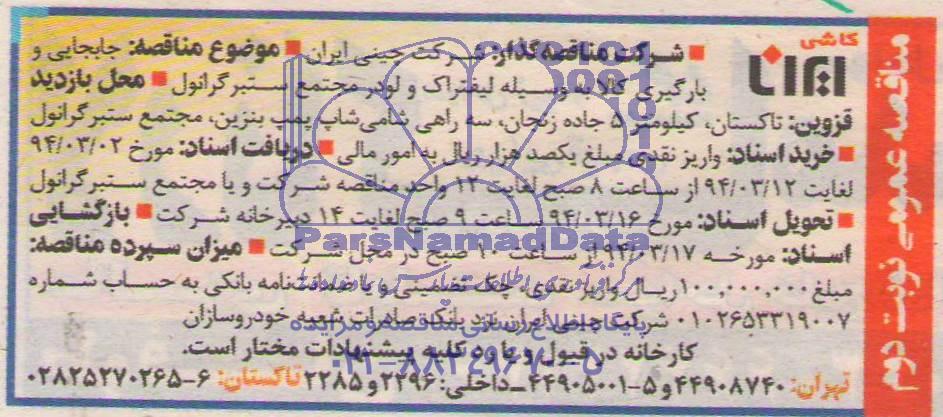 مناقصه عمومی نوبت دوم
کاشی
ایرانا
■ شرکت مناقصه‌گذار: شرکت چینی ایران ■ موضوع مناقصه: جابجایی و
بارگیری کالا به وسیله لیفتراک و لودر مجتمع ستبر گرانول ■ محل بازدید
قزوین: تاکستان، کیلومتر ۵ جاده زنجان، سه راهی شامی‌شاپ پمپ بنزین، مجتمع ستبر گرانول
■ خرید اسناد: واریز نقدی مبلغ یکصد هزار ریال به امور مالی ■ دریافت اسناد: مورخ ۹۴/۰۳/۰۲
لغایت ۹۴/۰۳/۱۲ از ساعت ۸ صبح لغایت ۱۲ واحد مناقصه شرکت و یا مجتمع ستبر گرانول
■ تحویل اسناد: مورخ ۹۴/۰۳/۱۶ ساعت ۹ صبح لغایت ۱۴ دبیرخانه شرکت ■ بازگشایی
اسناد: مورخه ۹۴/۰۳/۱۷ از ساعت ۱۰ صبح در محل شرکت ■ میزان سپرده مناقصه:
مبلغ ۱۰۰,۰۰۰,۰۰۰ ریال واریز نقدی، چک تضمینی و یا ضمانت‌نامه بانکی به حساب شماره
۰۱۰۲۶۵۳۳۱۹۰۰۷ شرکت چینی ایران نزد بانک صادرات شعبه خودروسازان
کارخانه در قبول و یا رد کلیه پیشنهادات مختار است.
تهران: ۴۴۹۰۸۷۴۰ و ۵-۴۴۹۰۵۰۰۱ـ داخلی: ۲۲۹۶ و ۲۲۸۵ تاکستان: ۶-۰۲۸۲۵۲۷۰۲۶۵
ParsNamadData
پایگاه اطلاع رسانی مناقصه و مزایده
۰۲۱-۸۸۳۴۹۶۷۰-۵